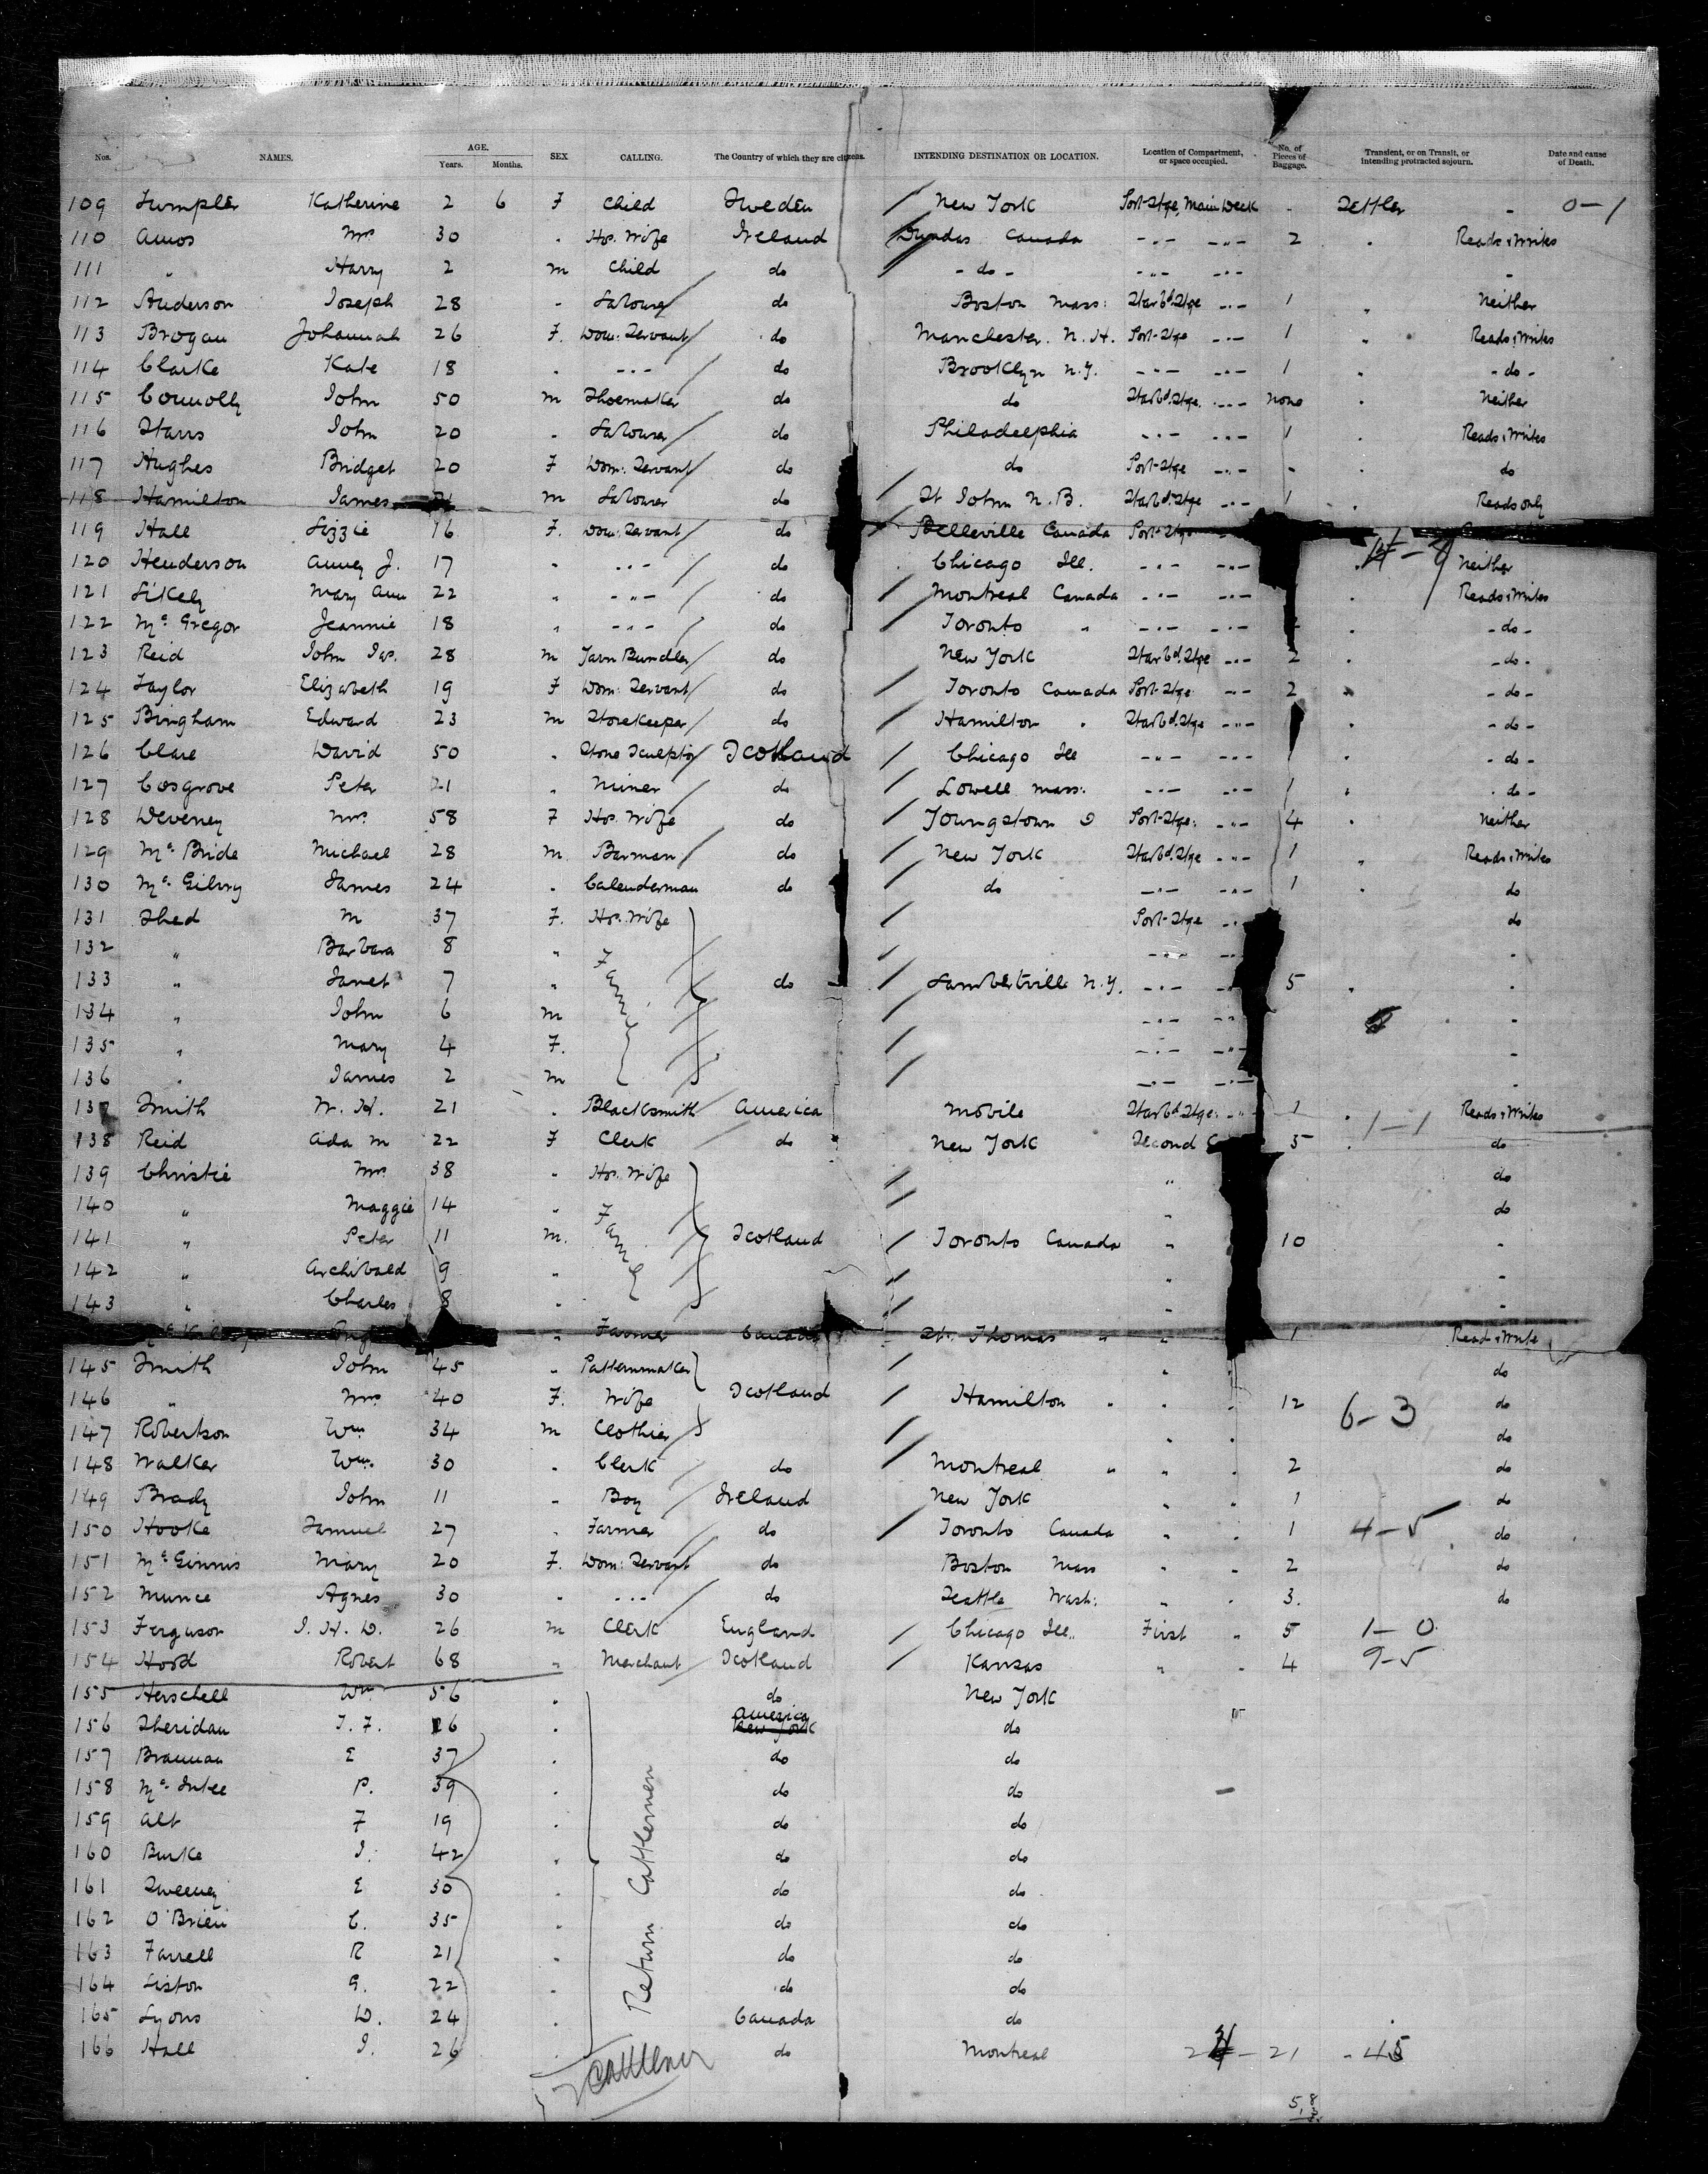 Nos. NAMES. AGE. Years. Months. SEX CALLING. The Country of which they are citizens. INTENDING DESTINATION OR LOCATION. Location of Compartment, or space occupied. No. of Pieces of Baggage. Transient, or on Transit, or intending protracted sojourn. Date and cause of Death.
109 Katherine 2 6 F Child Sweden New York Port Stge, Main Deck - Settler - 0-1
110 Amos Mrs 30 " Hs. Wife Ireland Dundas Canada -"- -"- 2 " Reads & Writes
111 " Harry 2 m Child do - do - -"- -"- -
112 Anderson Joseph 28 " Labourer do Boston Mass: Starbd. Stge -"- 1 " Neither
113 Brogan Johannah 26 F. Dom: Servant do Manchester. N.H. Port-Stge -"- 1 " Reads & Writes
114 Clarke Kate 18 " -"- do Brooklyn N.Y. -"- -"- 1 " - do -
115 Connolly John 50 m Shoemaker do do Starbd. Stge. -"- none " Neither
116 John 20 " Labourer do Philadelphia -"- -"- 1 " Reads & Writes
117 Hughes Bridget 20 F Dom: Servant do do Port-Stge -"- - " do
118 Hamilton James m Labourer do St John N.B. Starbd. Stge -"- 1 " Reads only
119 Hall Lizzie 16 F. Dom: Servant do Belleville Canada Port-Stge
120 Henderson Anney J. 17 " -"- do Chicago Ill. -"- -"- " Neither
121 Likely Mary Ann 22 " -"- do Montreal Canada -"- -"- " Reads & Writes
122 Mc Gregor Jeannie 18 " -"- do Toronto " -"- -"- " - do -
123 Reid John Jas. 28 m Yarn Bundler do New York Starbd. Stge -"- 2 " - do -
124 Taylor Elizabeth 19 F Dom: Servant do Toronto Canada Port-Stge -"- 2 " - do -
125 Bingham Edward 23 m Storekeeper do Hamilton " Starbd. Stge -"- " - do -
126 Clare David 50 " Stone Sculptor Scotland Chicago Ill -"- -"- 1 " - do -
127 Cosgrove Peter 21 " Miner do Lowell Mass: -"- -"- 1 " - do -
128 Deveney Mrs. 58 F Hs. Wife do Youngstown O Port-Stge: -"- 4 " Neither
129 Mc Bride Michael 28 m Barman do New York Starbd. Stge -"- 1 " Reads & Writes
130 James 24 " Calenderman do do -"- -"- 1 " do
131 Shed M 37 F. Hs. Wife Port-Stge -"- do
132 " Barbara 8 " -"- -
133 " Janet 7 " Family do Lambertville N.Y. -"- 5 " -
134 " John 6 m -"- -"- -
135 " Mary 4 F. -"- -"- -
136 " James 2 m -"- -"- -
137 Smith W. H. 21 " Blacksmith America Mobile Starbd. Stge: -"- 1 " Reads & Writes
1-1
138 Reid Ada M 22 F Clerk do New York Second 5 " do
139 Christie Mrs. 38 " Hs. Wife " do
140 " Maggie 14 " " do
141 " Peter 11 m. Family Scotland Toronto Canada " 10 -
142 " Archibald 9 " " -
143 " Charles 8 " " -
" Farmer Canada St. Thomas " " 1 Reads & Writes
145 Smith John 45 " Patternmaker " do
146 " Mrs. 40 F. Wife Scotland Hamilton " " " 12 6-3 do
147 Robertson Wm 34 m Clothier " " do
148 Walker Wm. 30 " Clerk do Montreal " " " 2 do
149 Brady John 11 " Boy Ireland New York " " 1 do
150 Hooke Samuel 27 " Farmer do Toronto Canada " " 1 4-5 do
151 Mc Ginnis Mary 20 F. Dom: Servant do Boston Mass " " 2 do
152 Munce Agnes 30 " -"- do Seattle Wash: " " 3. do
153 Ferguson J. H. D. 26 m Clerk England Chicago Ill. First " 5 1-0
154 Hood Robert 68 " Merchant Scotland Kansas " " 4 9-5
155 Herschell Wm 56 " do New York
156 Sheridan J. F. 26 " America New York do
157 Brannan E 37 " do do
158 P. 39 " do do
159 Alt F 19 " do do
160 Burke J. 42 " do do
161 Sweeney E 30 " Return Cattlemen do do
162 O'Brien C. 35 " do do
163 Farrell R 21 " do do
164 Liston G. 22 " do do
165 Lyons D. 24 " Canada do
166 Hall J. 26 " do Montreal - 21 - 45
Cattlemen